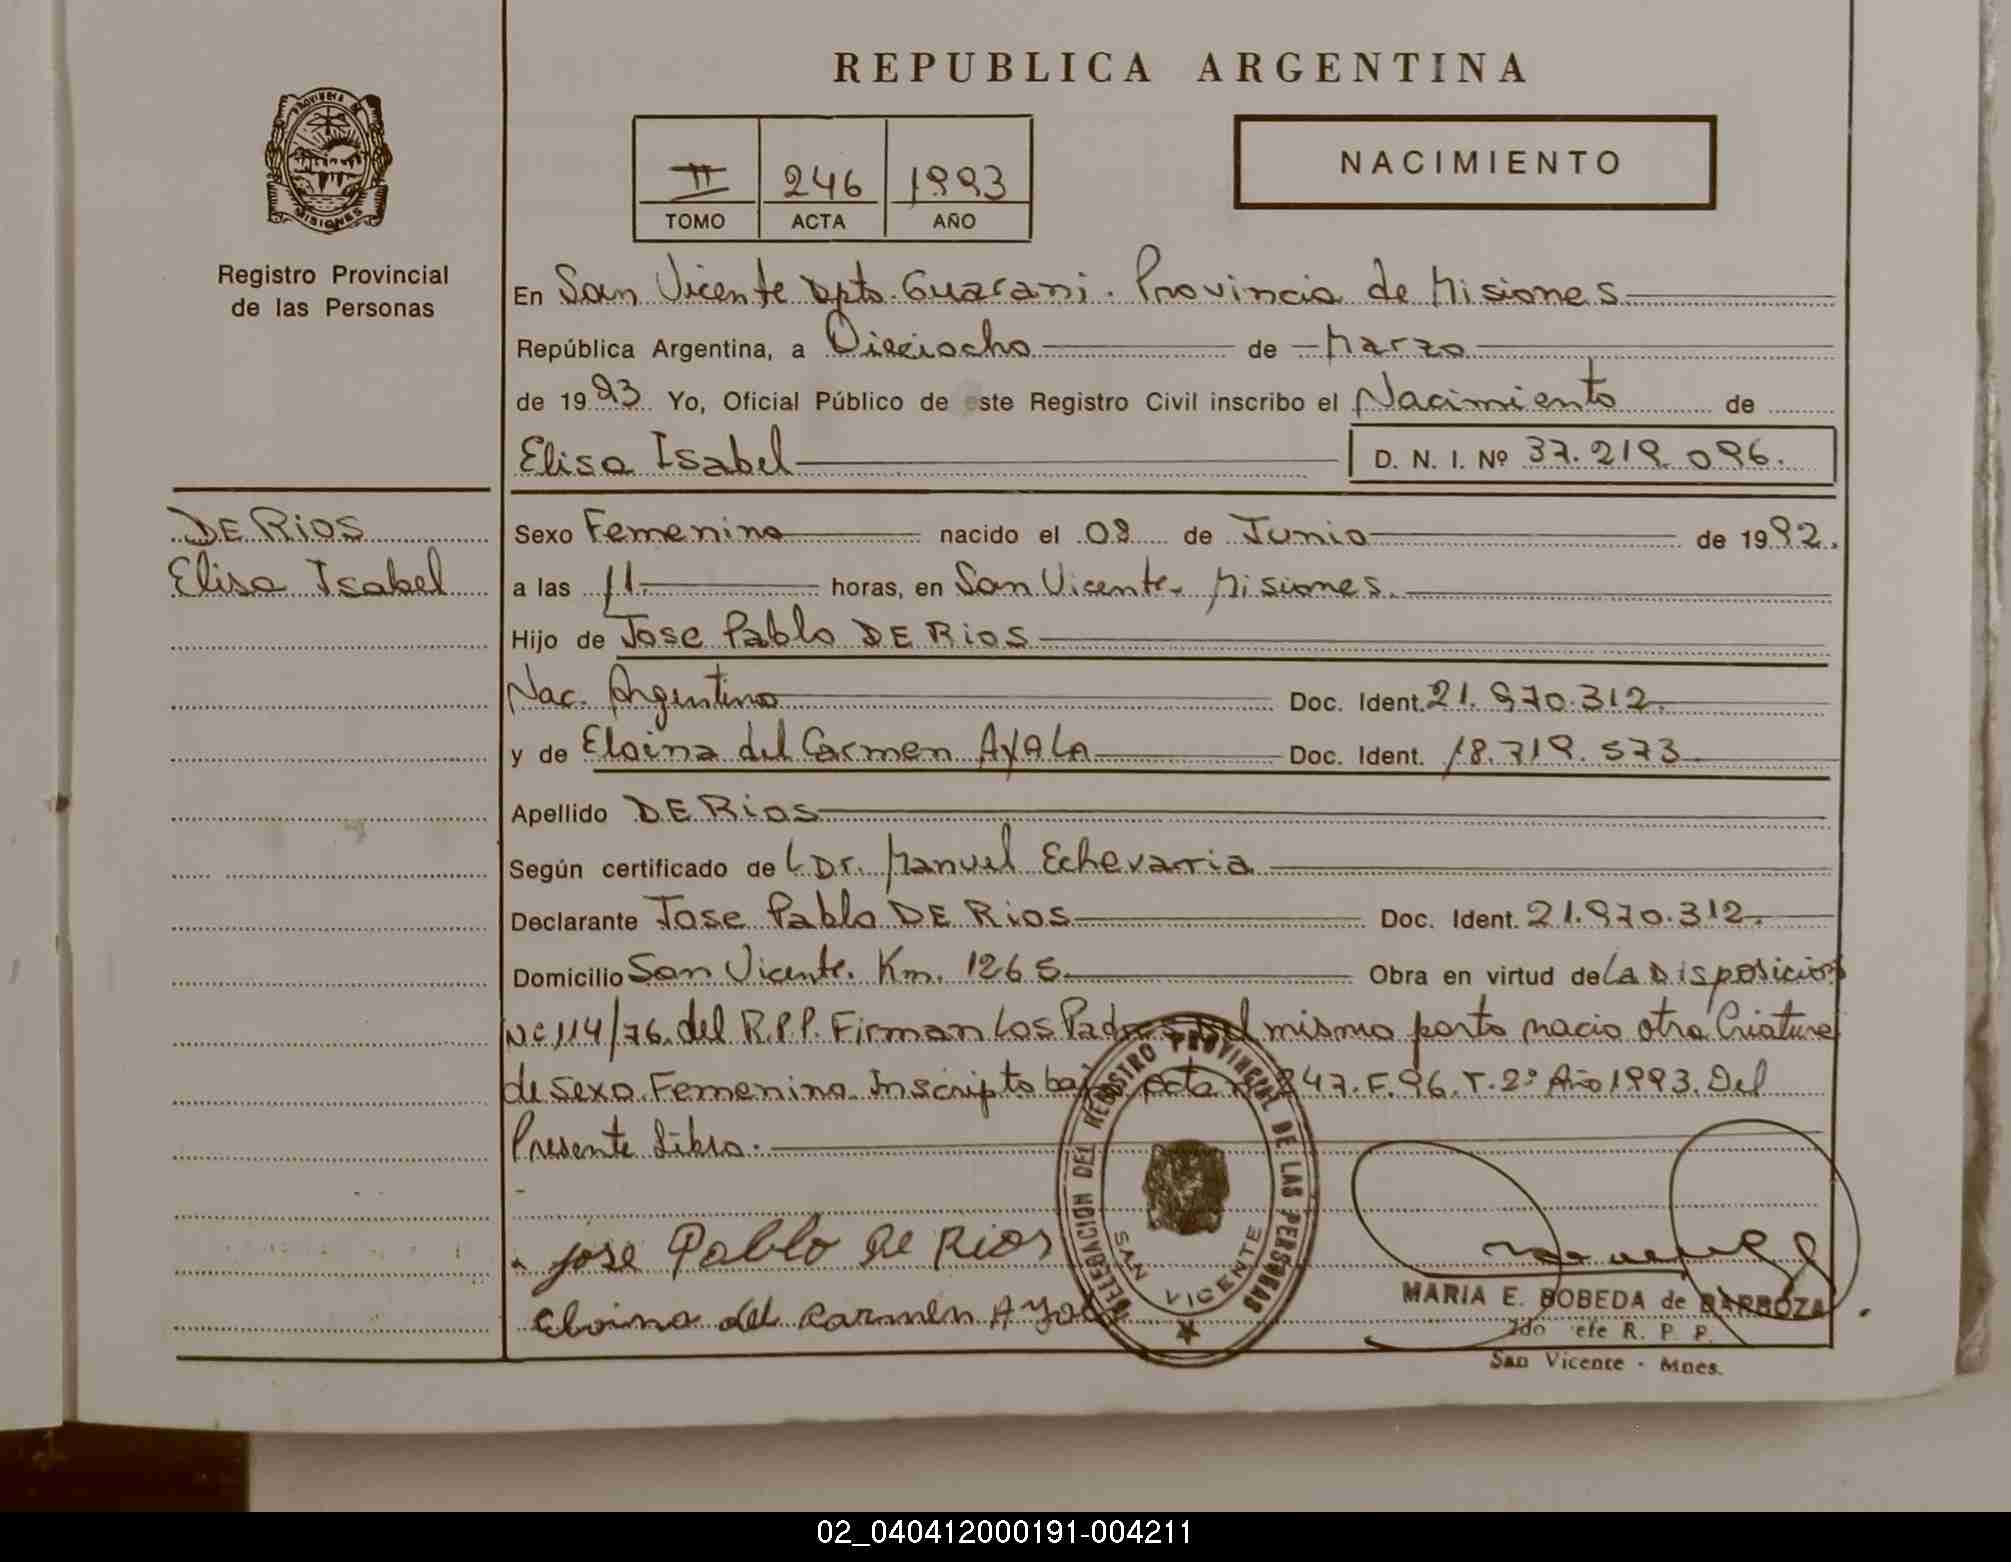 REPUBLICA ARGENTINA
PROVINCIA DE
MISIONES
Registro Provincial
de las Personas
II 246 1993
TOMO ACTA AÑO
NACIMIENTO
En San Vicente Dpto. Guarani. Provincia de Misiones
República Argentina, a Dieciocho de Marzo
de 1993 Yo, Oficial Público de este Registro Civil inscribo el Nacimiento de
Elisa Isabel D. N. I. Nº 37.219.096.
DE RIOS
Elisa Isabel
Sexo Femenino nacido el 08 de Junio de 1992.
a las 11. horas, en San Vicente. Misiones.
Hijo de Jose Pablo DE RIOS
Nac. Argentino Doc. Ident. 21.970.312.
y de Eloina del Carmen AYALA Doc. Ident. 18.719.573
Apellido DE RIOS
Según certificado de L Dr. Manuel Echevarria
Declarante Jose Pablo DE RIOS Doc. Ident. 21.970.312.
Domicilio San Vicente. Km. 1265 Obra en virtud de La Disposicion
Nº 114/76. del R.P.P. Firman Los Padres Del mismo parto nacio otra Criatura
de sexo Femenino Inscripto bajo acta nº 247. F. 96. T. 2º Año 1993. Del
Presente Libro.
Jose Pablo De Rios
Eloina del Carmen Ayala
DELEGACION DEL REGISTRO PROVINCIAL DE LAS PERSONAS
SAN VICENTE
MARIA E. BOBEDA de BARBOZA
R. P. P.
San Vicente - Mnes.
02_040412000191-004211